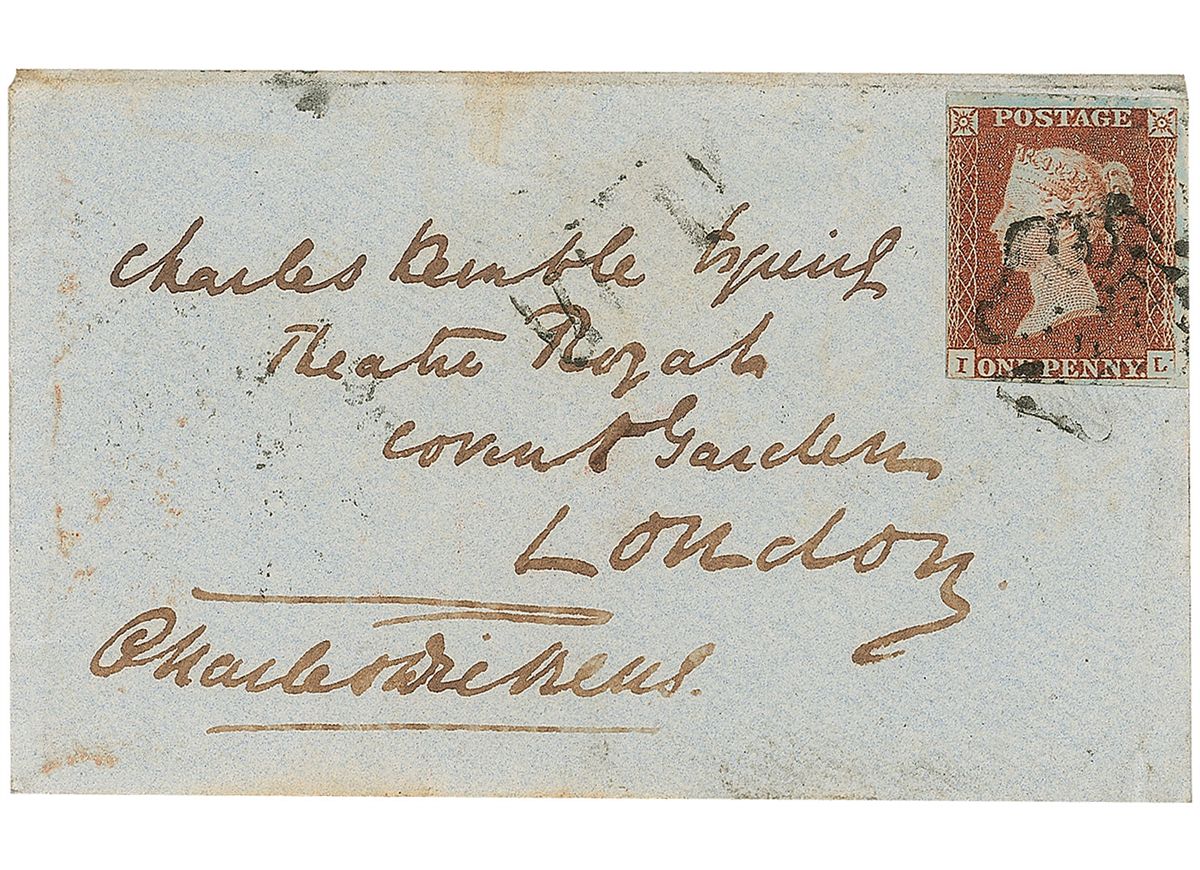 POSTAGE
I ONE PENNY. L
Charles Kemble Esquire
Theatre Royal
Covent Garden
London.
Charles Dickens.